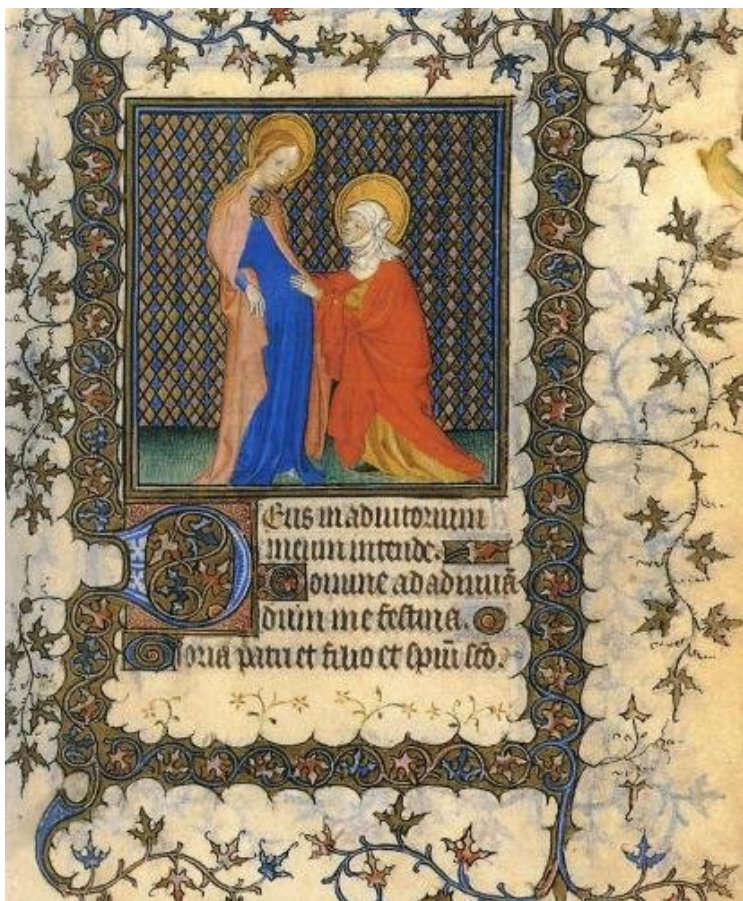 Deus in adiutorium
meum intende.
Domine ad adiuuā
dum me festina.
Gloria patri et filio et spiū sc̄o.